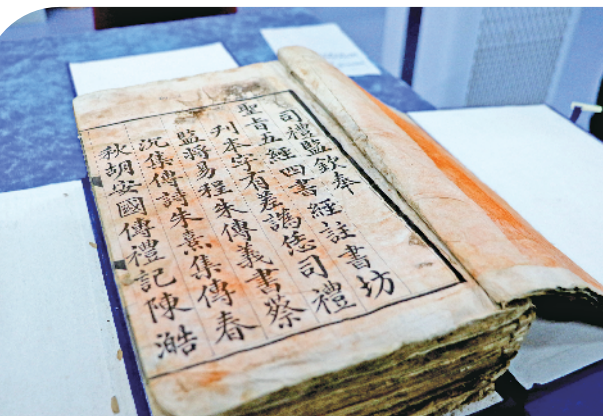 司禮監欽奉
聖旨五經四書經註書坊
刋本字有差譌恁司禮
監將易程朱傳義書蔡
沉集傳詩朱熹集傳春
秋胡安國傳禮記陳澔